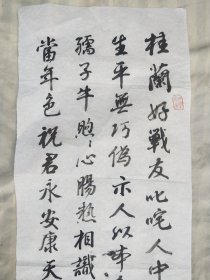 桂蘭好戰友叱咤人中
生平無巧偽示人以
孺子牛心腸熱相識
當年色祝君永安康天